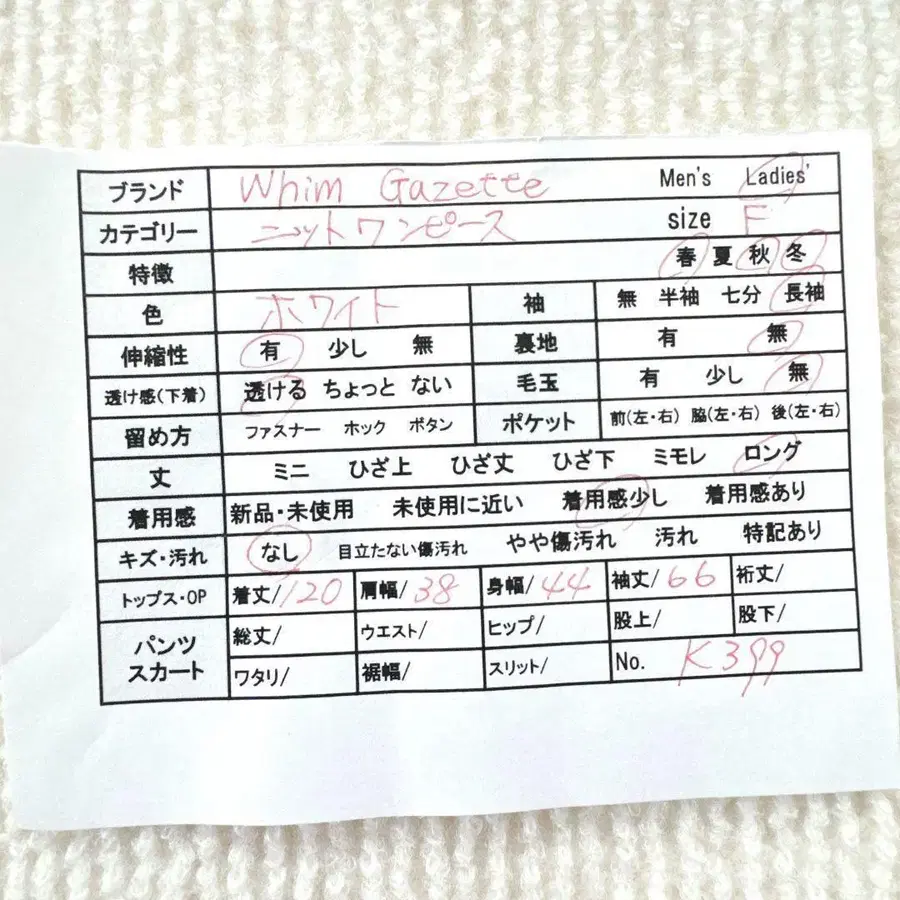 ブランド Whim Gazette Men's Ladies'
カテゴリー ニットワンピース size F
特徴 春 夏 秋 冬
色 ホワイト 袖 無 半袖 七分 長袖
伸縮性 有 少し 無 裏地 有 無
透け感(下着) 透ける ちょっと ない 毛玉 有 少し 無
留め方 ファスナー ホック ボタン ポケット 前(左・右) 脇(左・右) 後(左・右)
丈 ミニ ひざ上 ひざ丈 ひざ下 ミモレ ロング
着用感 新品・未使用 未使用に近い 着用感少し 着用感あり
キズ・汚れ なし 目立たない傷汚れ やや傷汚れ 汚れ 特記あり
トップス・OP 着丈/120 肩幅/38 身幅/44 袖丈/66 裄丈/
パンツ スカート 総丈/ ウエスト/ ヒップ/ 股上/ 股下/
ワタリ/ 裾幅/ スリット/ No. K399